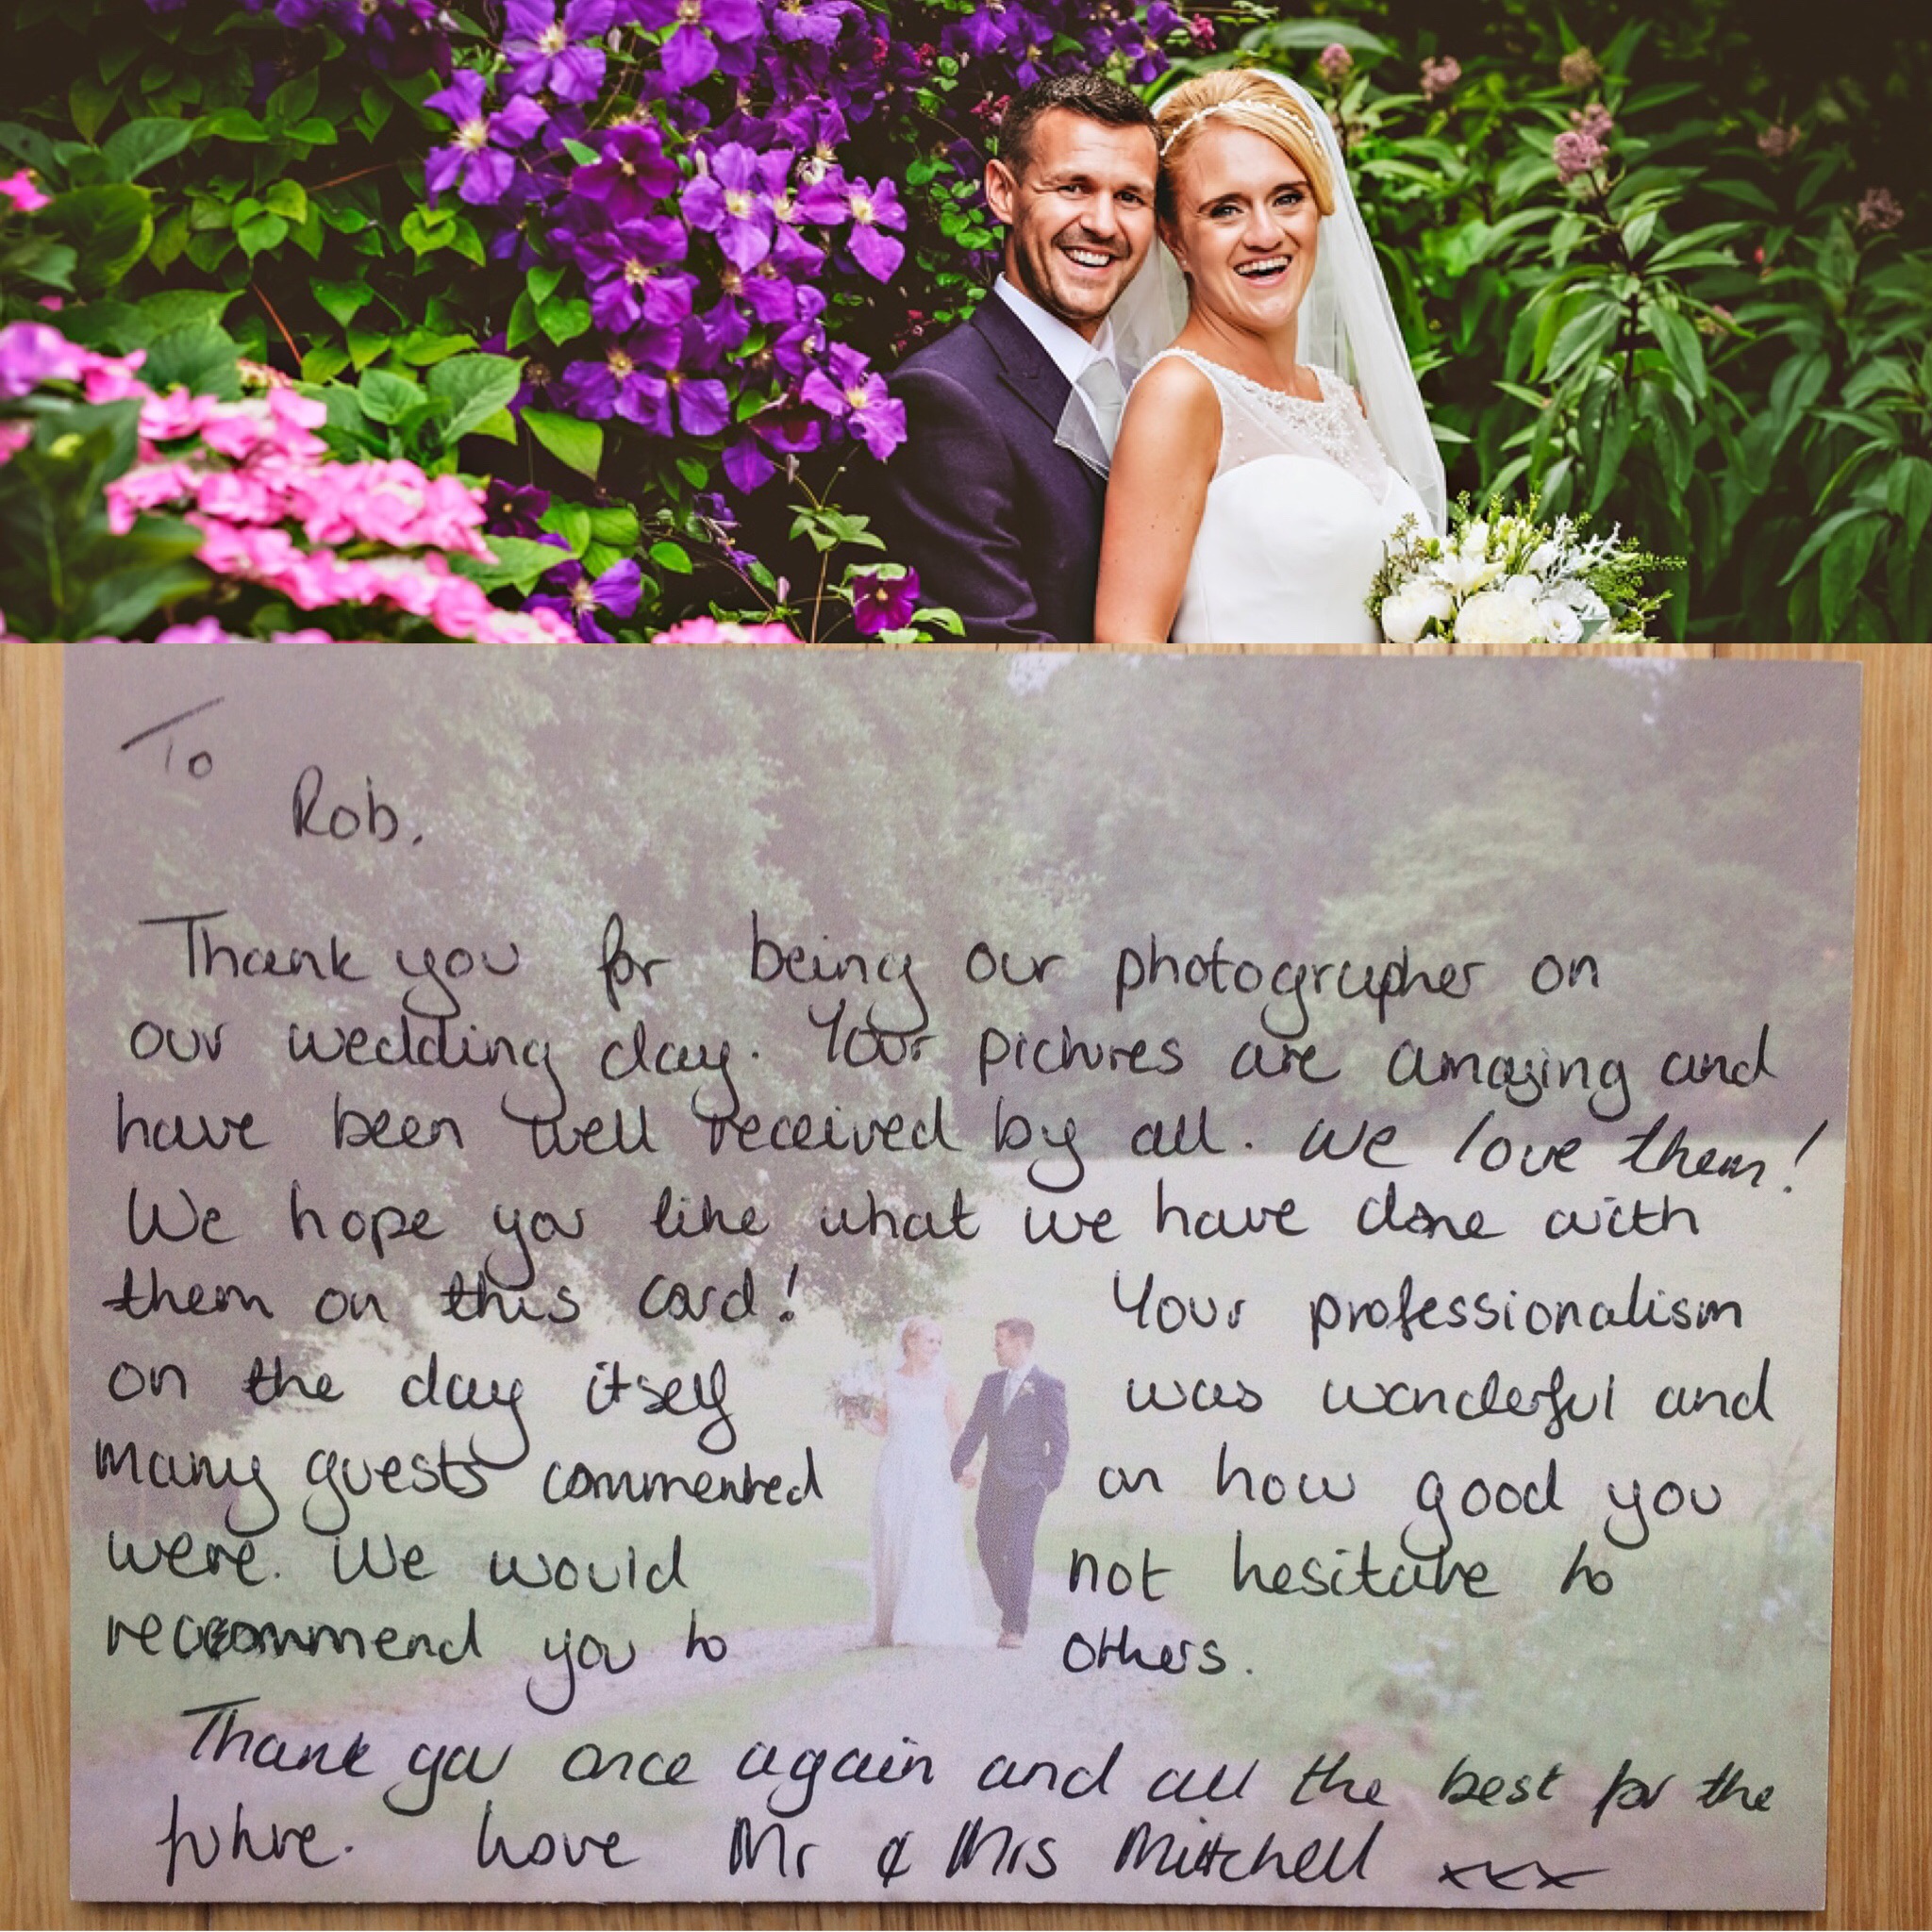 To
Rob.
Thank you for being our photographer on
our wedding day. Your pictures are amazing and
have been well received by all. We love them!
We hope you like what we have done with
them on this card! Your professionalism
on the day itself was wonderful and
many guests commented on how good you
were. We would not hesitate to
recommend you to others.
Thank you once again and all the best for the
future. Love Mr & Mrs Mitchell xxx